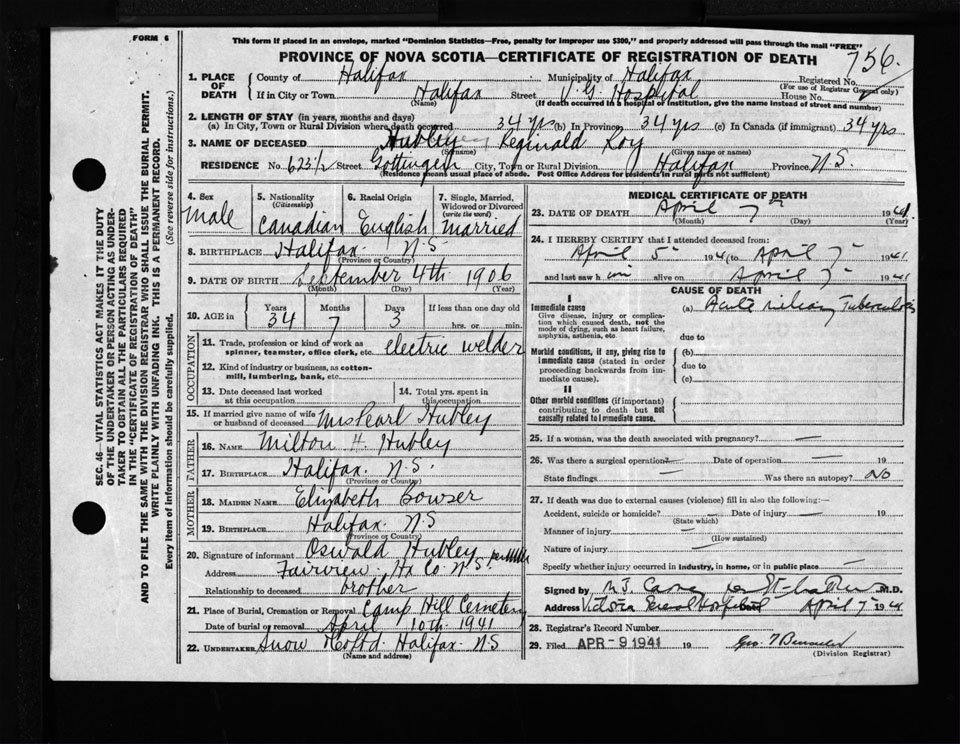 FORM 6
This form if placed in an envelope, marked "Dominion Statistics—Free, penalty for improper use $300," and properly addressed will pass through the mail "FREE"
PROVINCE OF NOVA SCOTIA—CERTIFICATE OF REGISTRATION OF DEATH
756
1. PLACE OF DEATH County of Halifax Municipality of Halifax Registered No.
(For use of Registrar General only)
If in City or Town Halifax Street V.G. Hospital House No.
(Name) (If death occurred in a hospital or institution, give the name instead of street and number)
2. LENGTH OF STAY (in years, months and days)
(a) In City, Town or Rural Division where death occurred 34 yrs (b) In Province 34 yrs (c) In Canada (if immigrant) 34 yrs
3. NAME OF DECEASED Hubley Reginald Roy
(Surname) (Given name or names)
RESIDENCE No. 623½ Street Gottingen City, Town or Rural Division Halifax Province N.S.
(Residence means usual place of abode. Post Office Address for residents in rural parts not sufficient)
4. Sex male
5. Nationality (Citizenship) Canadian
6. Racial Origin English
7. Single, Married, Widowed or Divorced (write the word) married
8. BIRTHPLACE Halifax N.S.
(Province or Country)
9. DATE OF BIRTH September 4th 1906
(Month) (Day) (Year)
10. AGE in Years 34 Months 7 Days 3 If less than one day old hrs. or min.
OCCUPATION
11. Trade, profession or kind of work as spinner, teamster, office clerk, etc. electric welder
12. Kind of industry or business, as cotton-mill, lumbering, bank, etc.
13. Date deceased last worked at this occupation
14. Total yrs. spent in this occupation
15. If married give name of wife or husband of deceased Mrs Pearl Hubley
FATHER
16. NAME Milton H. Hubley
17. BIRTHPLACE Halifax. N.S.
(Province or Country)
MOTHER
18. MAIDEN NAME Elizabeth Bowser
19. BIRTHPLACE Halifax. N.S
(Province or Country)
20. Signature of informant Oswald Hubley per
Address Fairview. Hx Co N.S.
Relationship to deceased brother
21. Place of Burial, Cremation or Removal Camp Hill Cemetery
Date of burial or removal April 10th 1941
22. UNDERTAKER Snow & Co Ltd Halifax N.S
(Name and address)
MEDICAL CERTIFICATE OF DEATH
23. DATE OF DEATH April 7th 1941
(Month) (Day) (Year)
24. I HEREBY CERTIFY that I attended deceased from:
April 5 1941 to April 7 1941
and last saw him alive on April 7 1941
CAUSE OF DEATH
I
Immediate cause
Give disease, injury or complication which caused death, not the mode of dying, such as heart failure, asphyxia, asthenia, etc.
(a) Acute miliary Tuberculosis
due to
Morbid conditions, if any, giving rise to immediate cause (stated in order proceeding backwards from immediate cause).
(b)
due to
(c)
II
Other morbid conditions (if important) contributing to death but not causally related to immediate cause.
25. If a woman, was the death associated with pregnancy? —
26. Was there a surgical operation? — Date of operation — 19
State findings — Was there an autopsy? No
27. If death was due to external causes (violence) fill in also the following:
Accident, suicide or homicide? — Date of injury — 19
(State which)
Manner of injury —
(How sustained)
Nature of injury —
Specify whether injury occurred in industry, in home, or in public place —
Signed by M.D.
Address Victoria General Hospital April 7 1941
28. Registrar's Record Number
29. Filed APR - 9 1941 19 Geo. T
(Division Registrar)
SEC. 46—VITAL STATISTICS ACT MAKES IT THE DUTY
OF THE UNDERTAKER OR PERSON ACTING AS UNDERTAKER
TO OBTAIN ALL THE PARTICULARS REQUIRED
IN THE "CERTIFICATE OF REGISTRATION OF DEATH"
AND TO FILE THE SAME WITH THE DIVISION REGISTRAR WHO SHALL ISSUE THE BURIAL PERMIT.
WRITE PLAINLY WITH UNFADING INK. THIS IS A PERMANENT RECORD.
Every item of information should be carefully supplied. (See reverse side for instructions.)